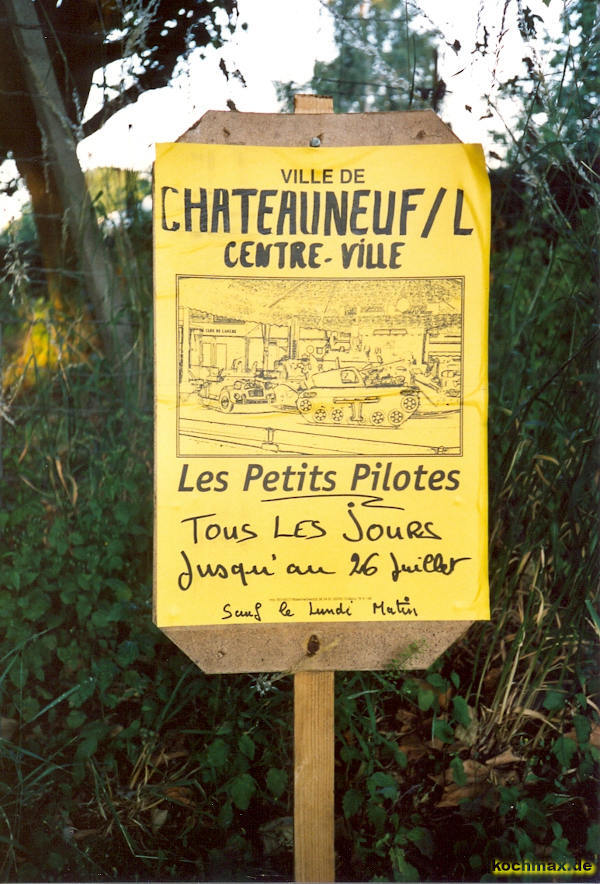 VILLE DE
CHATEAUNEUF/L
CENTRE-VILLE
Les Petits Pilotes
TOUS LES JOURS
Jusqu'au 26 Juillet
Sauf le Lundi Matin
kochmax.de